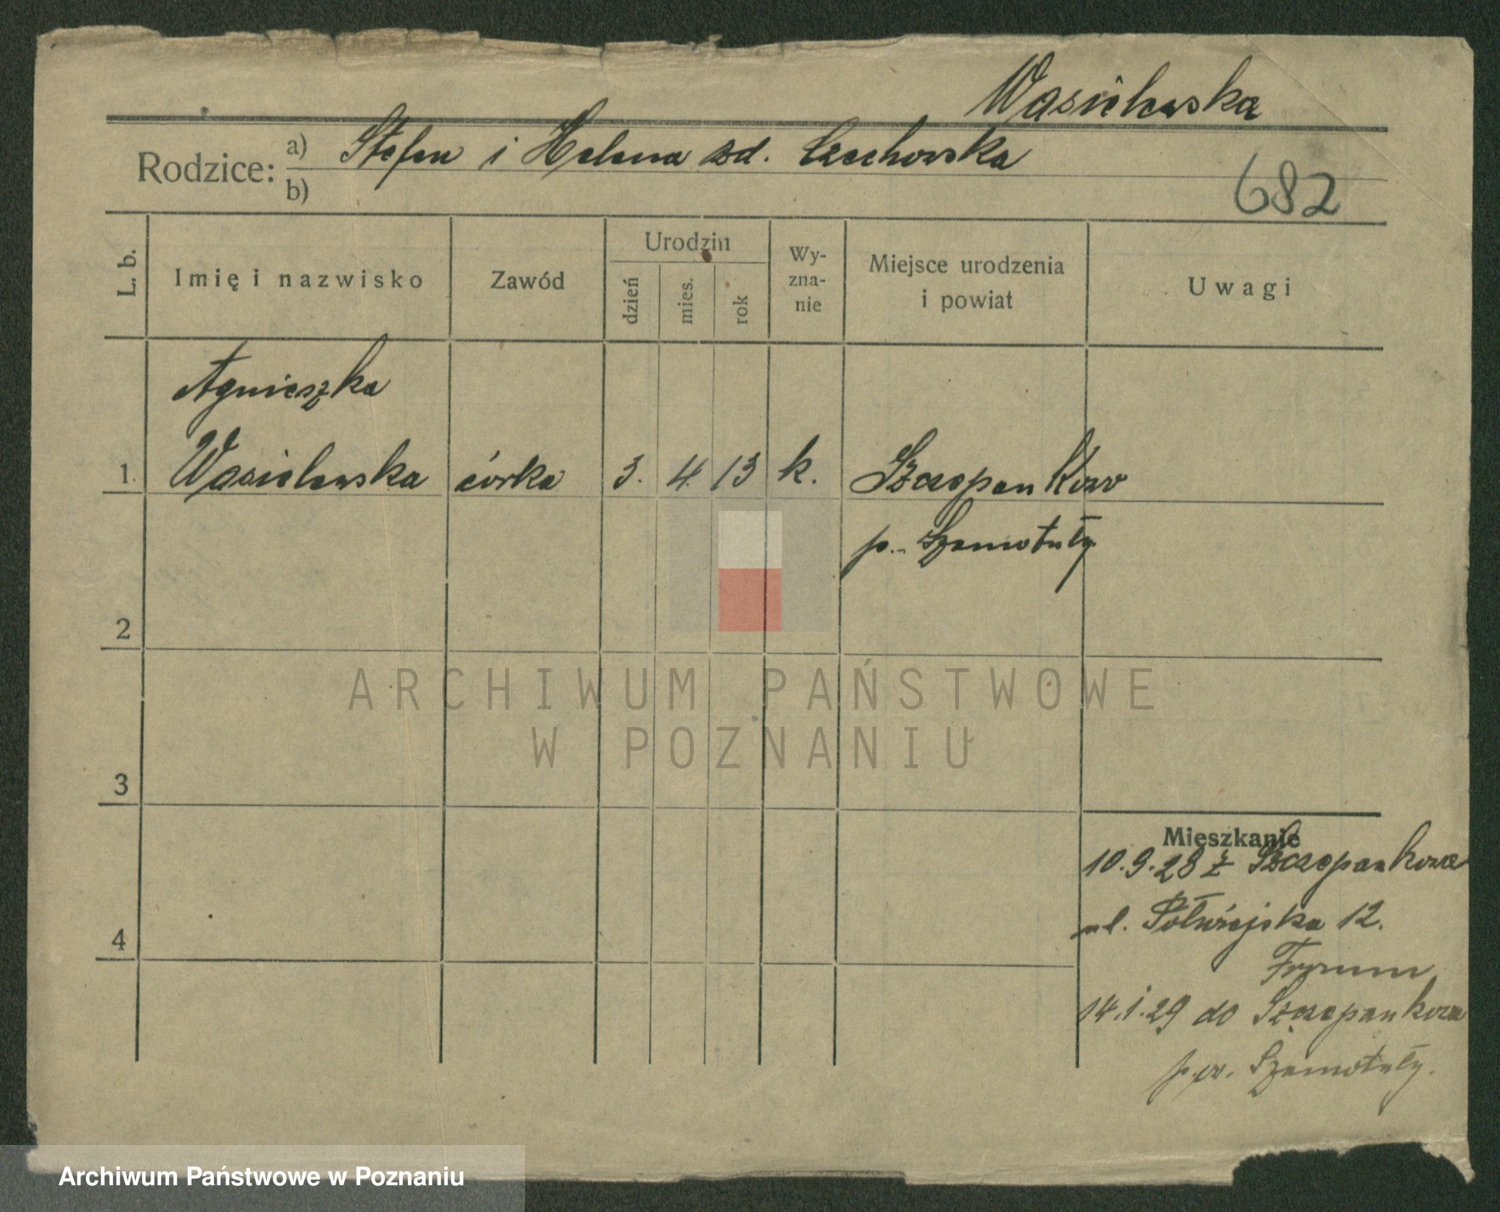 Wasielewska
Rodzice: a) Stefan i Helena zd. Czechowska
b)
682
L. b.
Imię i nazwisko
Zawód
Urodzin
dzień
mies.
rok
Wy-
zna-
nie
Miejsce urodzenia
i powiat
Uwagi
Agnieszka
1. Wasielewska córka 3. 4. 13 k. Szczepankowo
p. Szamotuły
2
3
4
Mieszkanie
10.9.28 z Szczepankowa
ul. Półwiejska 12.
14.1.29 do Szczepankowa
pow. Szamotuły.
ARCHIWUM PAŃSTWOWE
W POZNANIU
Archiwum Państwowe w Poznaniu